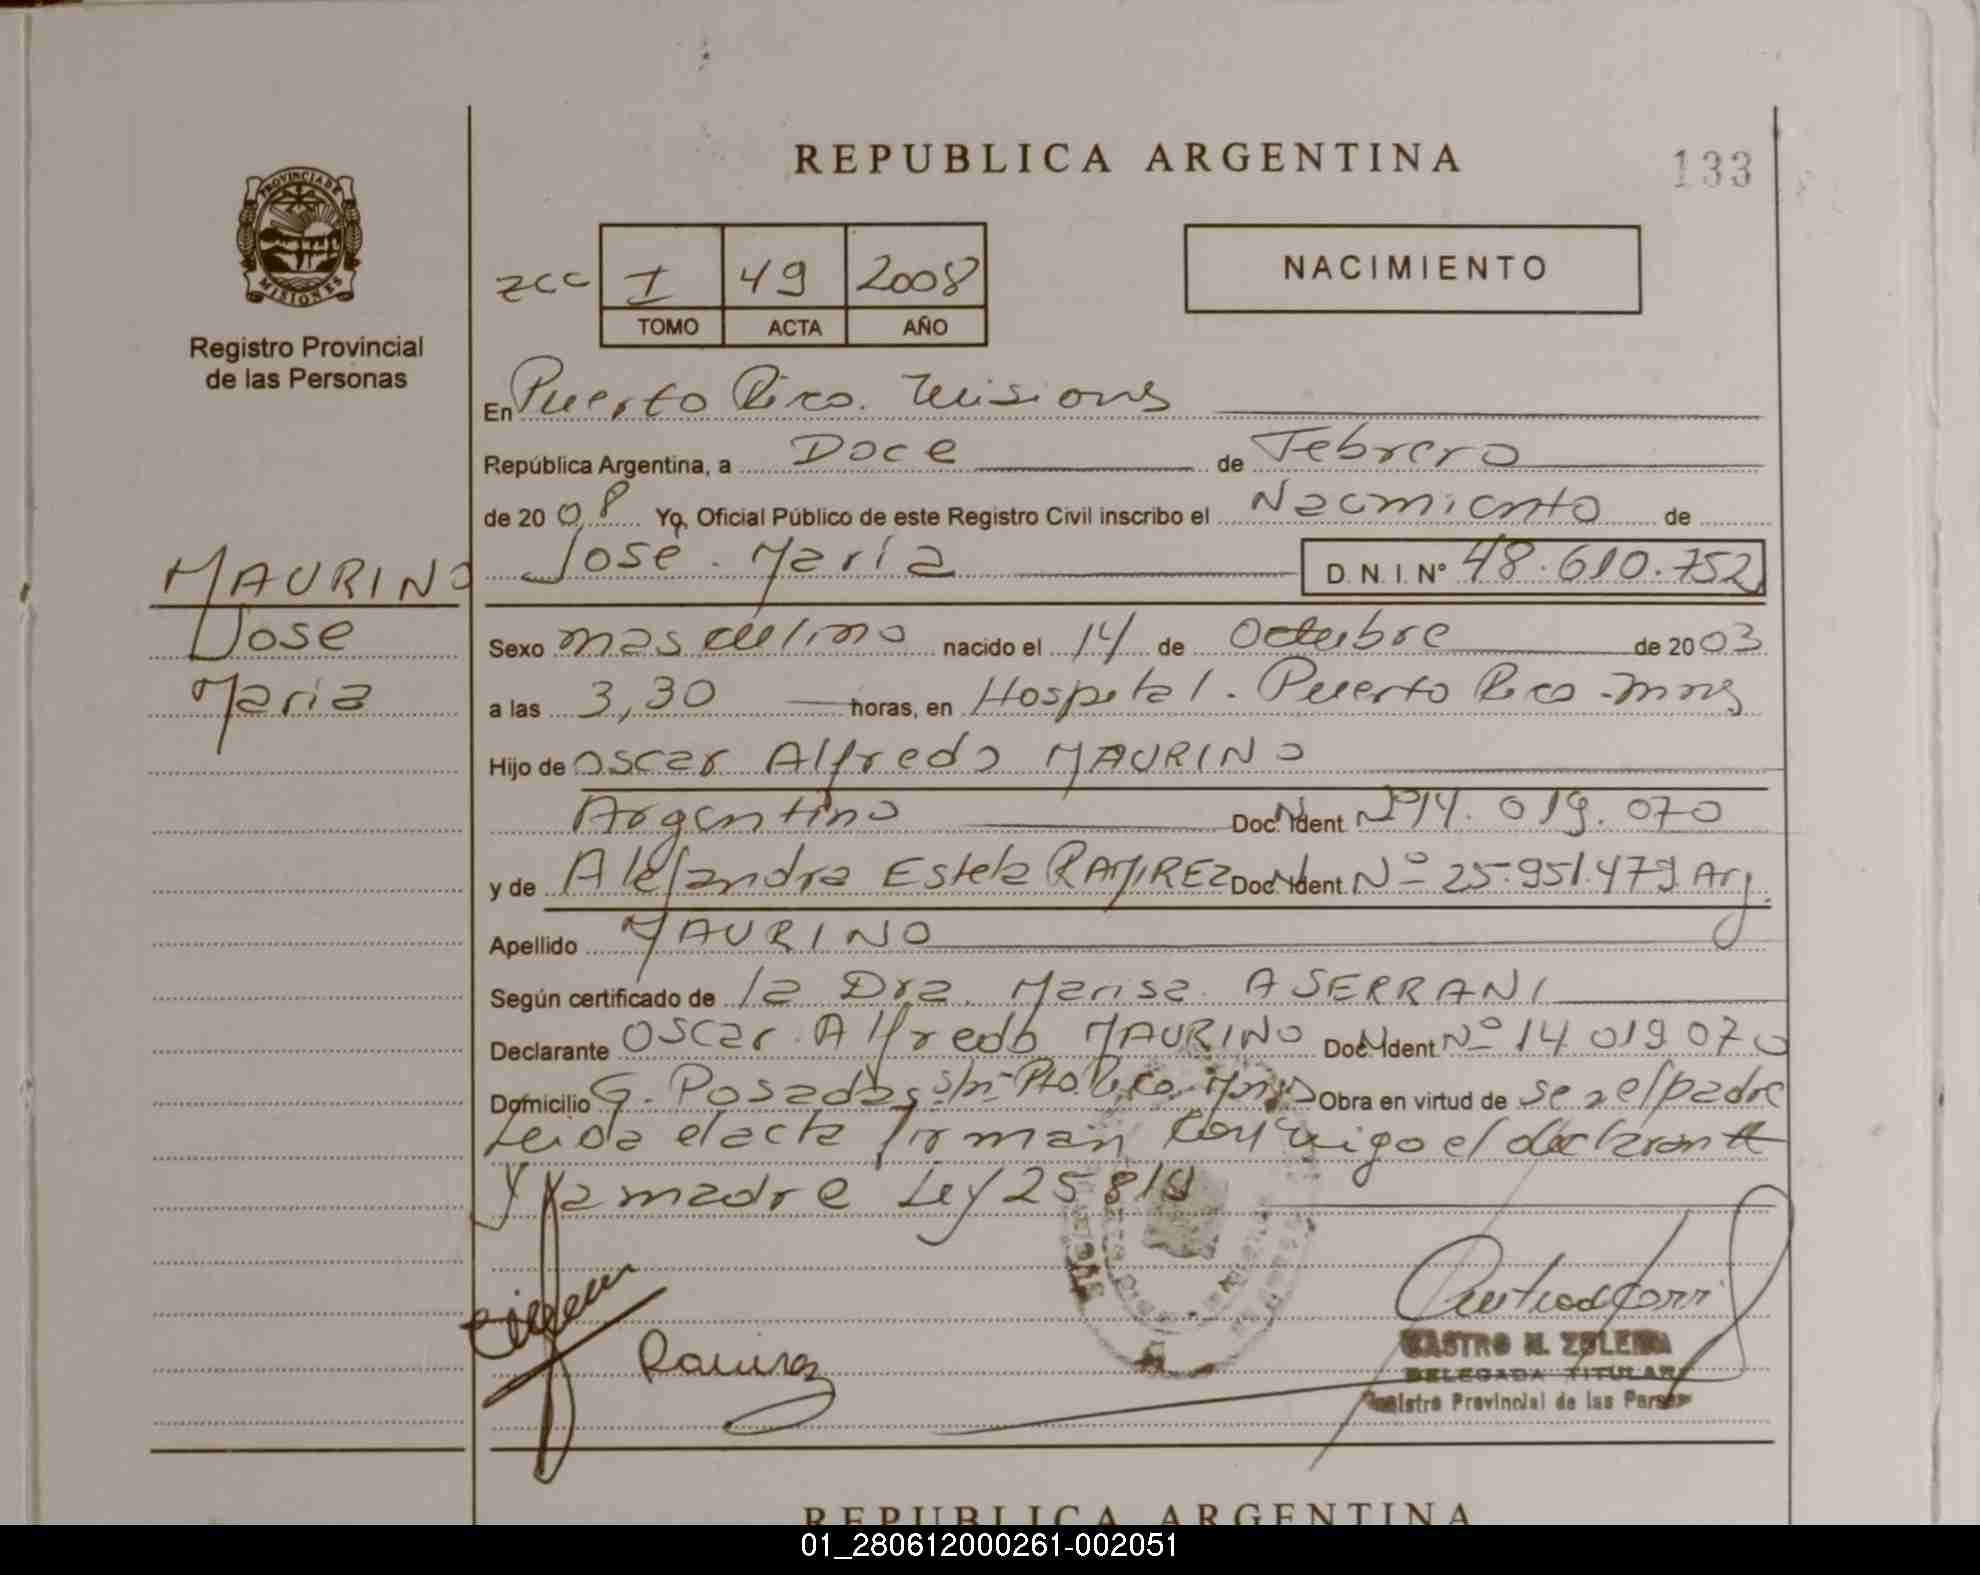 REPUBLICA ARGENTINA
133
PROVINCIA DE
MISIONES
Registro Provincial
de las Personas
zcc I 49 2008
TOMO ACTA AÑO
NACIMIENTO
En Puerto Rico. Misiones
República Argentina, a Doce de Febrero
de 2008 Yo, Oficial Público de este Registro Civil inscribo el Nacimiento de
José María D.N.I. Nº 48.610.752
MAURINO
Jose
Maria
Sexo masculino nacido el 14 de Octubre de 2003
a las 3,30 horas, en Hospital. Puerto Rico - Mnes
Hijo de Oscar Alfredo MAURINO
Argentino Doc. Ident Nº 14.019.070
y de Alejandra Estela RAMIREZ Doc. Ident. Nº 25.951.479 Arg.
Apellido MAURINO
Según certificado de la Dra. Marisa ASERRANI
Declarante Oscar Alfredo MAURINO Doc. Ident. Nº 14 019 070
Domicilio G. Posadas s/n - Pto. Rico Mnes Obra en virtud de se el padre
Leida el acta firman conmigo el declarante
y la madre Ley 25 819
Ramirez
CASTRO M. ZULEMA
DELEGADA TITULAR
Registro Provincial de las Personas
REPUBLICA ARGENTINA
01_280612000261-002051